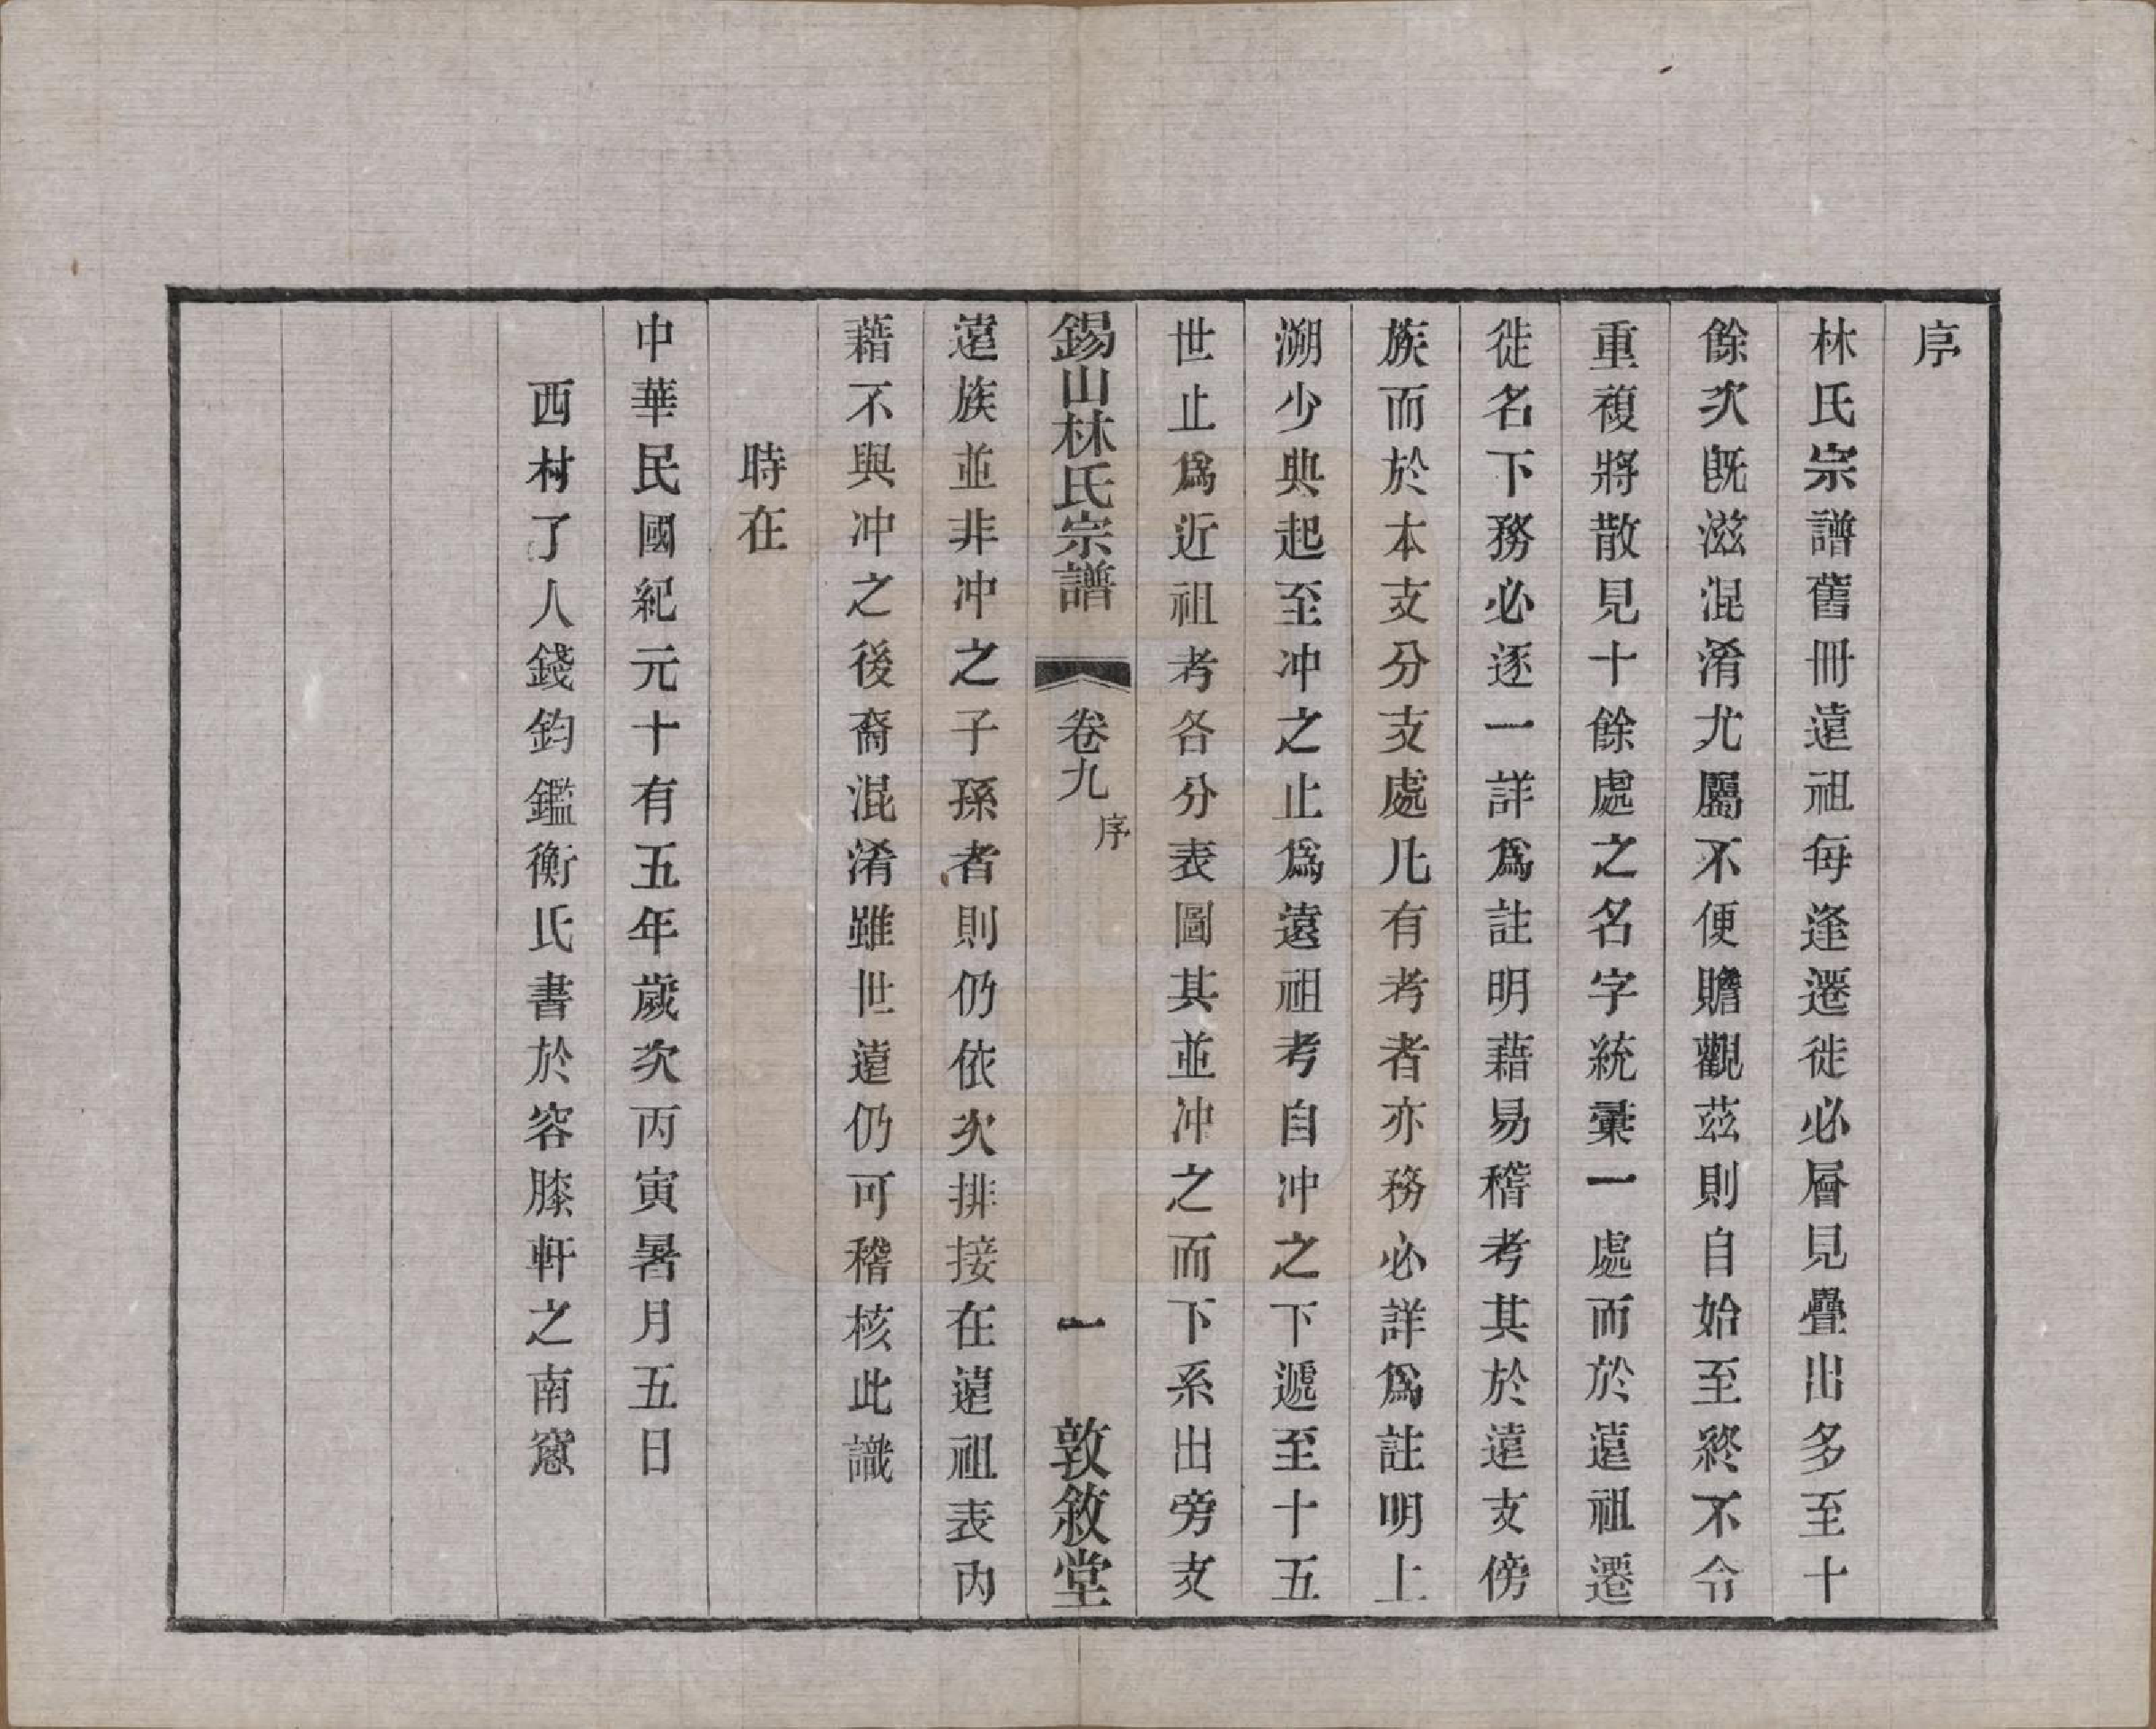 序
林氏宗譜舊冊遠祖每逢遷徙必層見疊出多至十
餘次旣滋混淆尤屬不便瞻觀茲則自始至終不令
重複將散見十餘處之名字統彙一處而於遠祖遷
徙名下務必逐一詳爲註明藉易稽考其於遠支傍
族而於本支分支處凡有考者亦務必詳爲註明上
溯少典起至冲之止爲遠祖考自冲之下遞至十五
世止爲近祖考各分表圖其並冲之而下系出旁支
錫山林氏宗譜
卷九
序
一
敦敘堂
遠族並非冲之子孫者則仍依次排接在遠祖表內
藉不與冲之後裔混淆雖世遠仍可稽核此識
時在
中華民國紀元十有五年歲次丙寅暑月五日
西村了人錢鈞鑑衡氏書於容膝軒之南窻